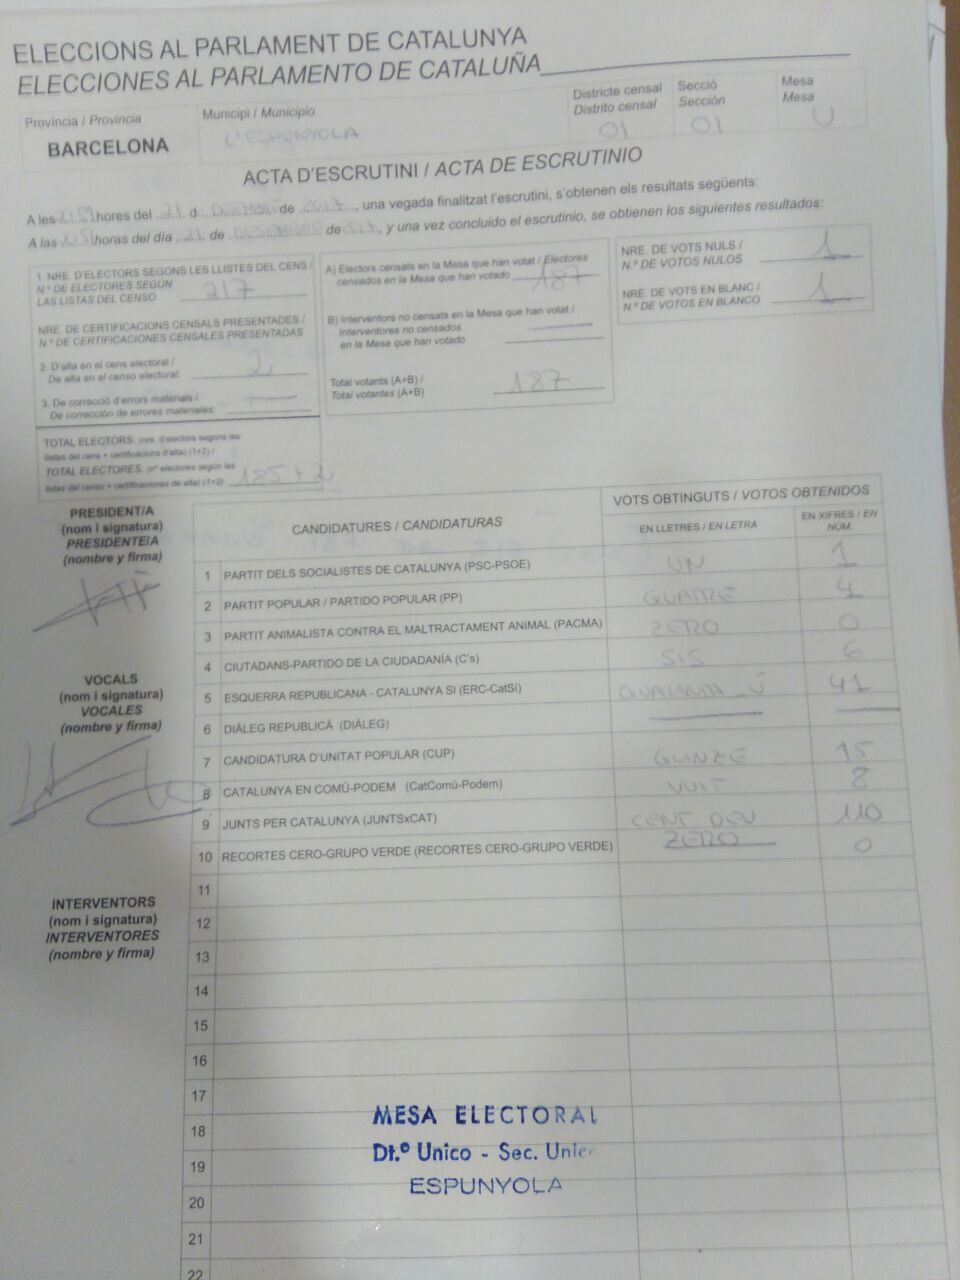 ELECCIONS AL PARLAMENT DE CATALUNYA
ELECCIONES AL PARLAMENTO DE CATALUÑA
Província / Provincia
BARCELONA
Municipi / Municipio
L'ESPUNYOLA
Districte censal
Distrito censal
01
Secció
Sección
01
Mesa
Mesa
U
ACTA D'ESCRUTINI / ACTA DE ESCRUTINIO
A les hores del 21 d de 2017, una vegada finalitzat l'escrutini, s'obtenen els resultats següents:
A las horas del día 21 de de , y una vez concluido el escrutinio, se obtienen los siguientes resultados:
1. NRE. D'ELECTORS SEGONS LES LLISTES DEL CENS /
N.º DE ELECTORES SEGÚN
LAS LISTAS DEL CENSO 217
NRE. DE CERTIFICACIONS CENSALS PRESENTADES /
N.º DE CERTIFICACIONES CENSALES PRESENTADAS
2. D'alta en el cens electoral /
De alta en el censo electoral: 2
3. De correcció d'errors materials /
De corrección de errores materiales: —
TOTAL ELECTORS: (nre. d'electors segons les
llistes del cens + certificacions d'alta) (1+2) /
TOTAL ELECTORES: (nº electores según las
listas del censo + certificaciones de alta) (1+2) 185+2
A) Electors censats en la Mesa que han votat / Electores
censados en la Mesa que han votado 187
B) Interventors no censats en la Mesa que han votat /
Interventores no censados
en la Mesa que han votado —
Total votants (A+B) /
Total votantes (A+B) 187
NRE. DE VOTS NULS /
N.º DE VOTOS NULOS 1
NRE. DE VOTS EN BLANC /
N.º DE VOTOS EN BLANCO 1
PRESIDENT/A
(nom i signatura)
PRESIDENTE/A
(nombre y firma)
VOCALS
(nom i signatura)
VOCALES
(nombre y firma)
INTERVENTORS
(nom i signatura)
INTERVENTORES
(nombre y firma)
CANDIDATURES / CANDIDATURAS
VOTS OBTINGUTS / VOTOS OBTENIDOS
EN LLETRES / EN LETRA
EN XIFRES / EN NÚM.
1 PARTIT DELS SOCIALISTES DE CATALUNYA (PSC-PSOE) UN 1
2 PARTIT POPULAR / PARTIDO POPULAR (PP) QUATRE 4
3 PARTIT ANIMALISTA CONTRA EL MALTRACTAMENT ANIMAL (PACMA) ZERO 0
4 CIUTADANS-PARTIDO DE LA CIUDADANÍA (C's) SIS 6
5 ESQUERRA REPUBLICANA - CATALUNYA SI (ERC-CatSí) 41
6 DIÀLEG REPUBLICÀ (DIÀLEG) — —
7 CANDIDATURA D'UNITAT POPULAR (CUP) QUINZE 15
8 CATALUNYA EN COMÚ-PODEM (CatComú-Podem) VUIT 8
9 JUNTS PER CATALUNYA (JUNTSxCAT) CENT DEU 110
10 RECORTES CERO-GRUPO VERDE (RECORTES CERO-GRUPO VERDE) ZERO 0
11
12
13
14
15
16
17
18
19
20
21
22
MESA ELECTORAL
Dt.º Unico - Sec. Unica
ESPUNYOLA